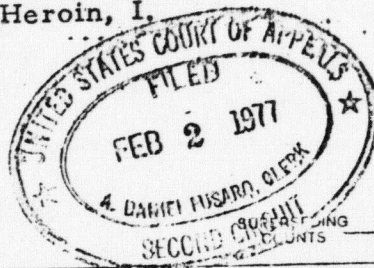 Heroin, I.
UNITED STATES COURT OF APPEALS
FILED
FEB 2 1977
A. DANIEL FUSARO, CLERK
SECOND CIRCUIT
SUPERSEDING
COUNTS